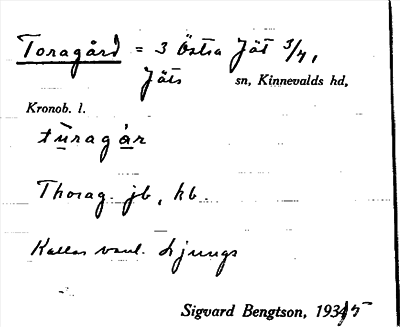 Toragård = 3 Östra Jät 3/4,
Jäts sn, Kinnevalds hd,
Kronob. l.
tùragår
Thorag. jb, kb.
Kallas vanl. Ljungs
Sigvard Bengtson, 1935